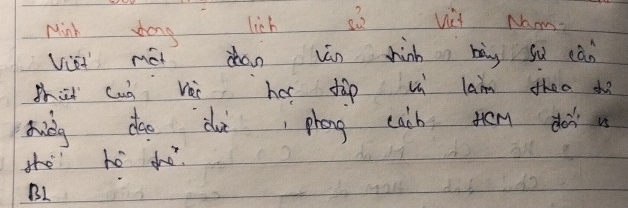 Minh trong lịch sử Việt Nam.
Viết một đoạn văn trình bày sự cần
thiết của việc học tập và làm theo tư
tưởng đạo đức, phong cách HCM đối vs
thế hệ trẻ.
BL